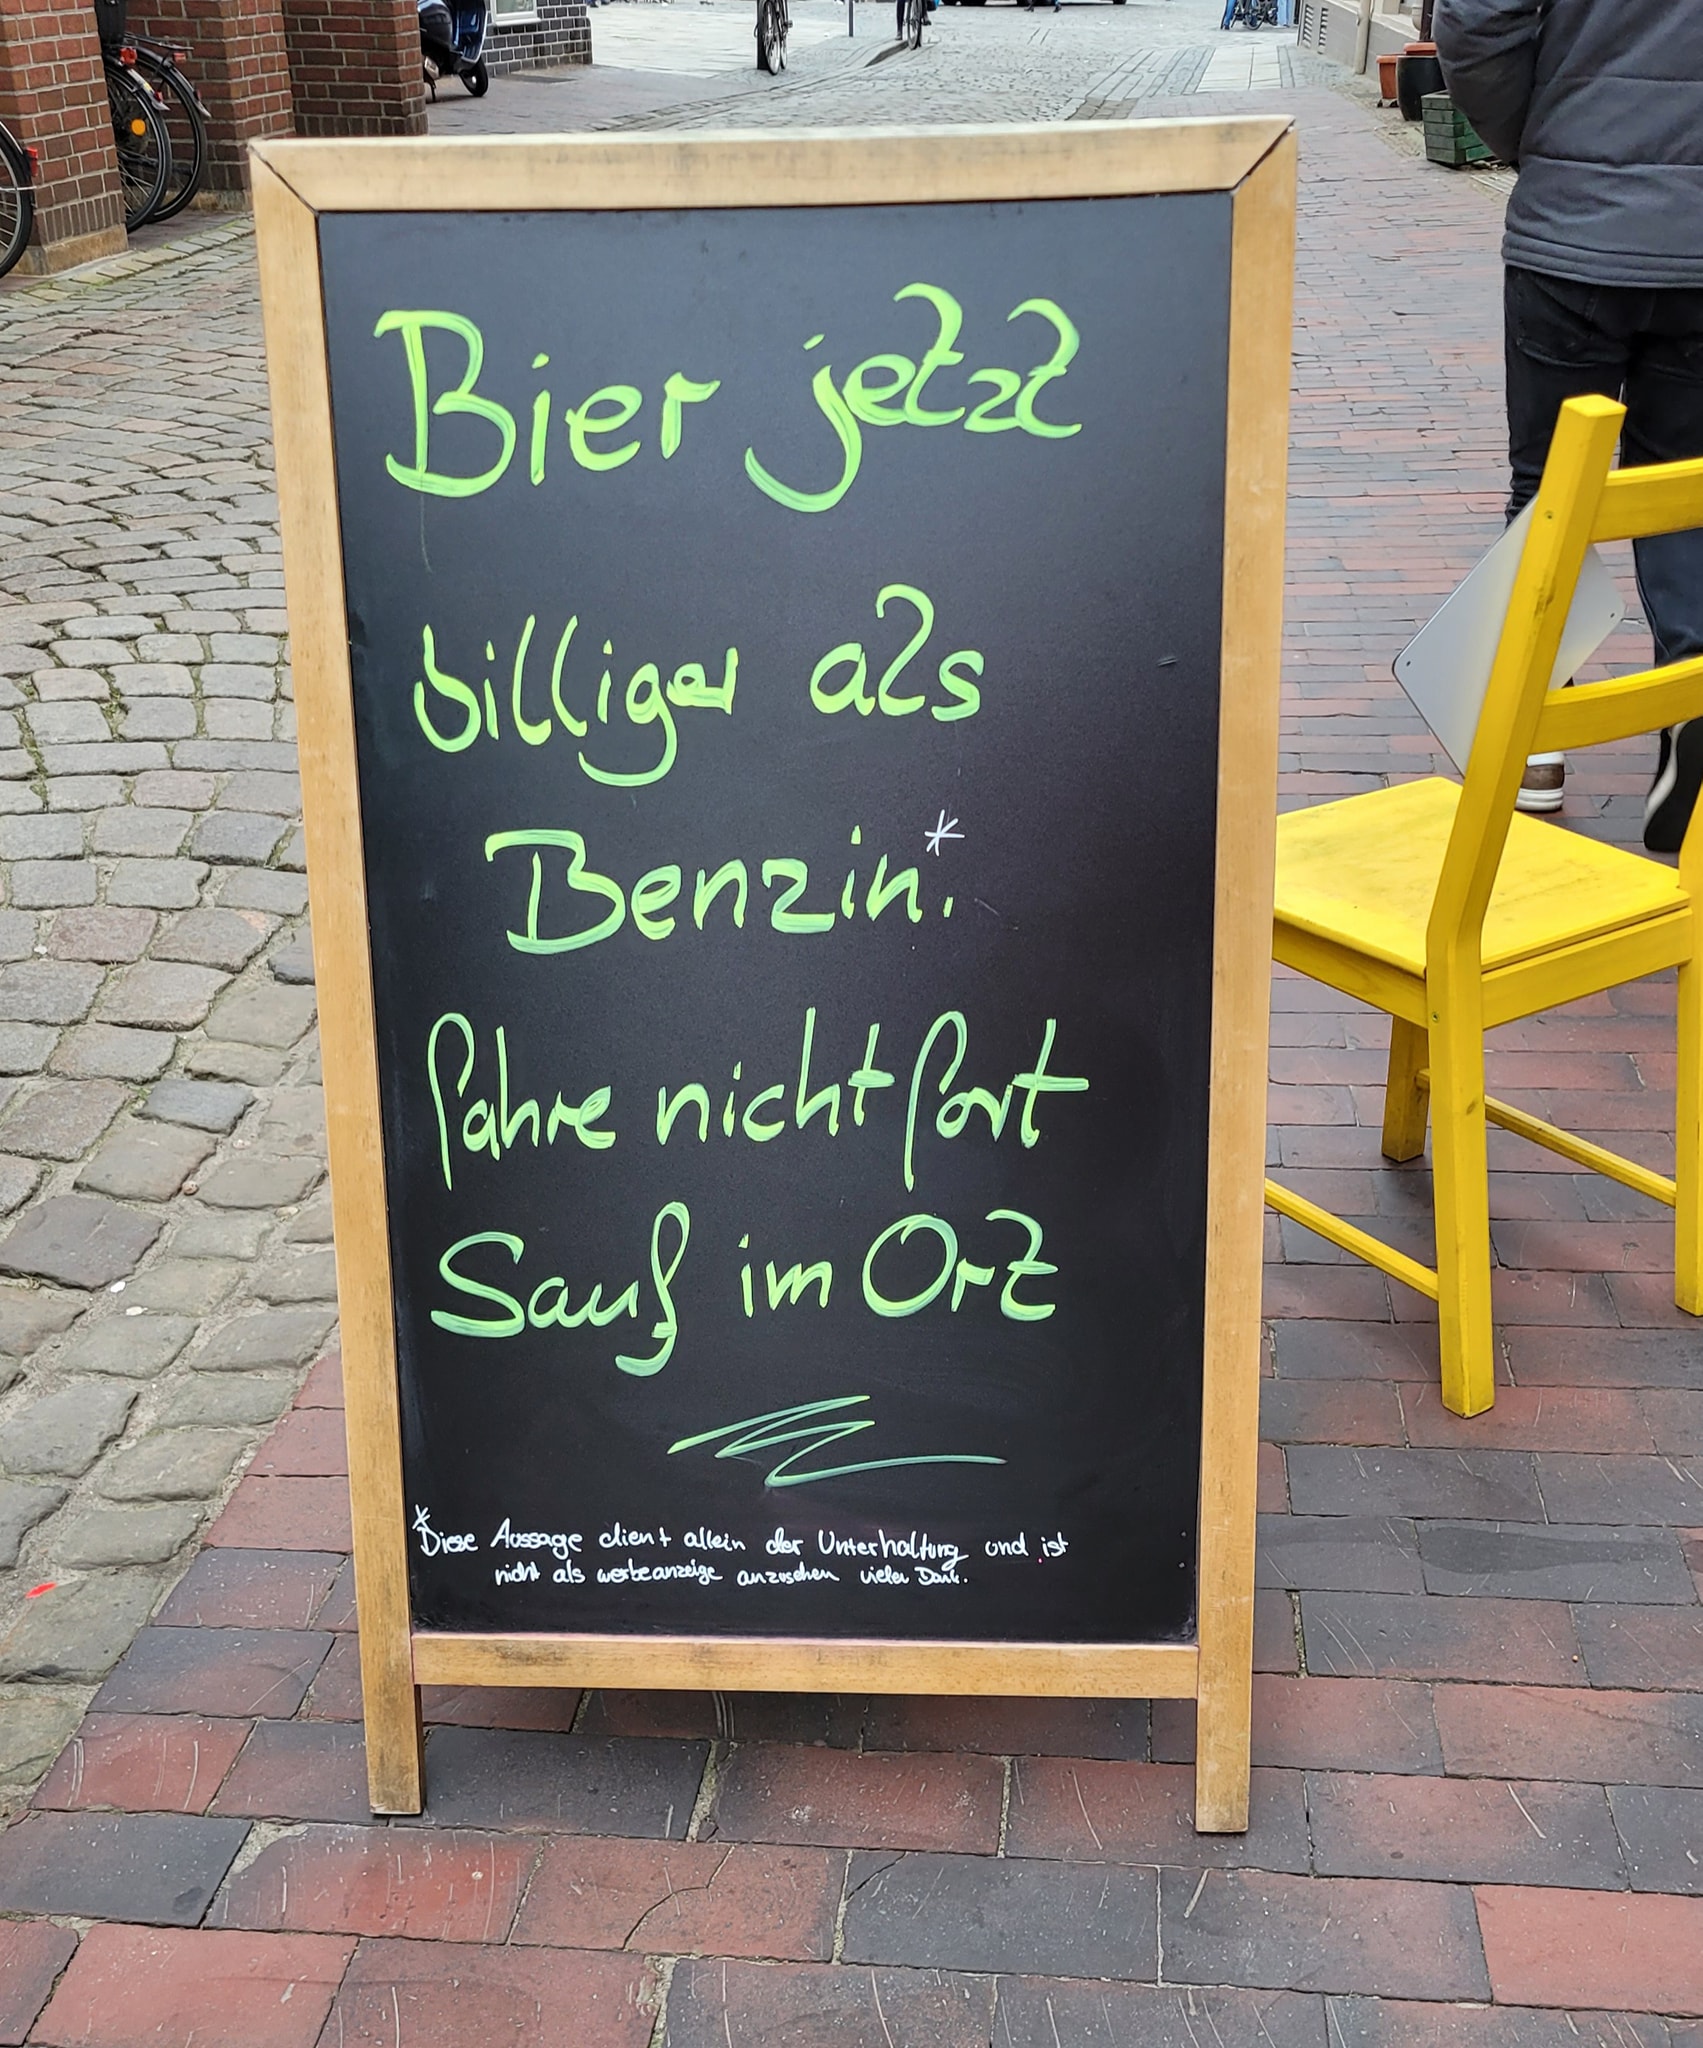 Bier jetzt
billiger als
Benzin.*
fahre nicht fort
Sauf im Orz
*Diese Aussage dient allein der Unterhaltung und ist
nicht als werbeanzeige anzusehen vielen Dank.